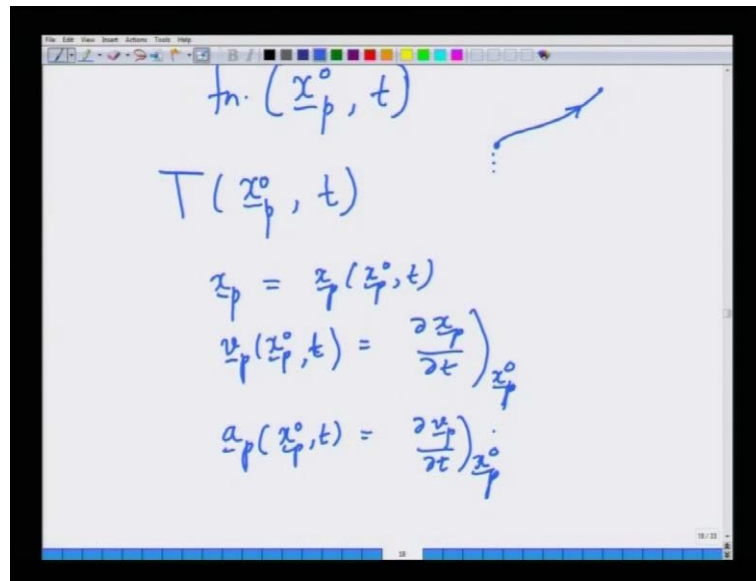 File Edit View Insert Actions Tools Help
fn. (x̲°ₚ, t)
T (x̲°ₚ, t)
x̲ₚ = x̲ₚ (x̲°ₚ, t)
v̲ₚ (x̲°ₚ, t) = ∂x̲ₚ/∂t )x̲°ₚ
a̲ₚ (x̲°ₚ, t) = ∂v̲ₚ/∂t )x̲°ₚ
18/33
18